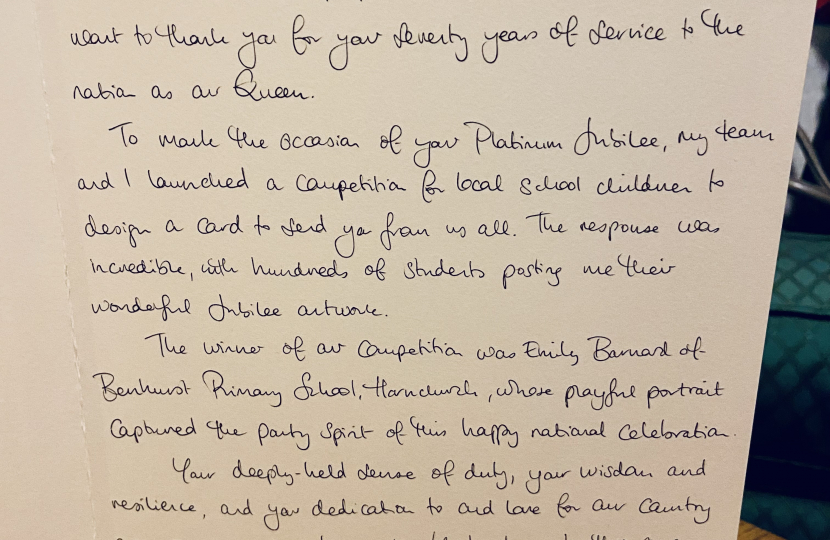 want to thank you for your seventy years of service to the
nation as our Queen.
To mark the occasion of your Platinum Jubilee, my team
and I launched a competition for local school children to
design a card to send you from us all. The response was
incredible, with hundreds of students posting me their
wonderful Jubilee artwork.
The winner of our competition was Emily Barnard of
Benhurst Primary School, Hornchurch, whose playful portrait
captured the party spirit of this happy national celebration.
Your deeply-held sense of duty, your wisdom and
resilience, and your dedication to and love for our country